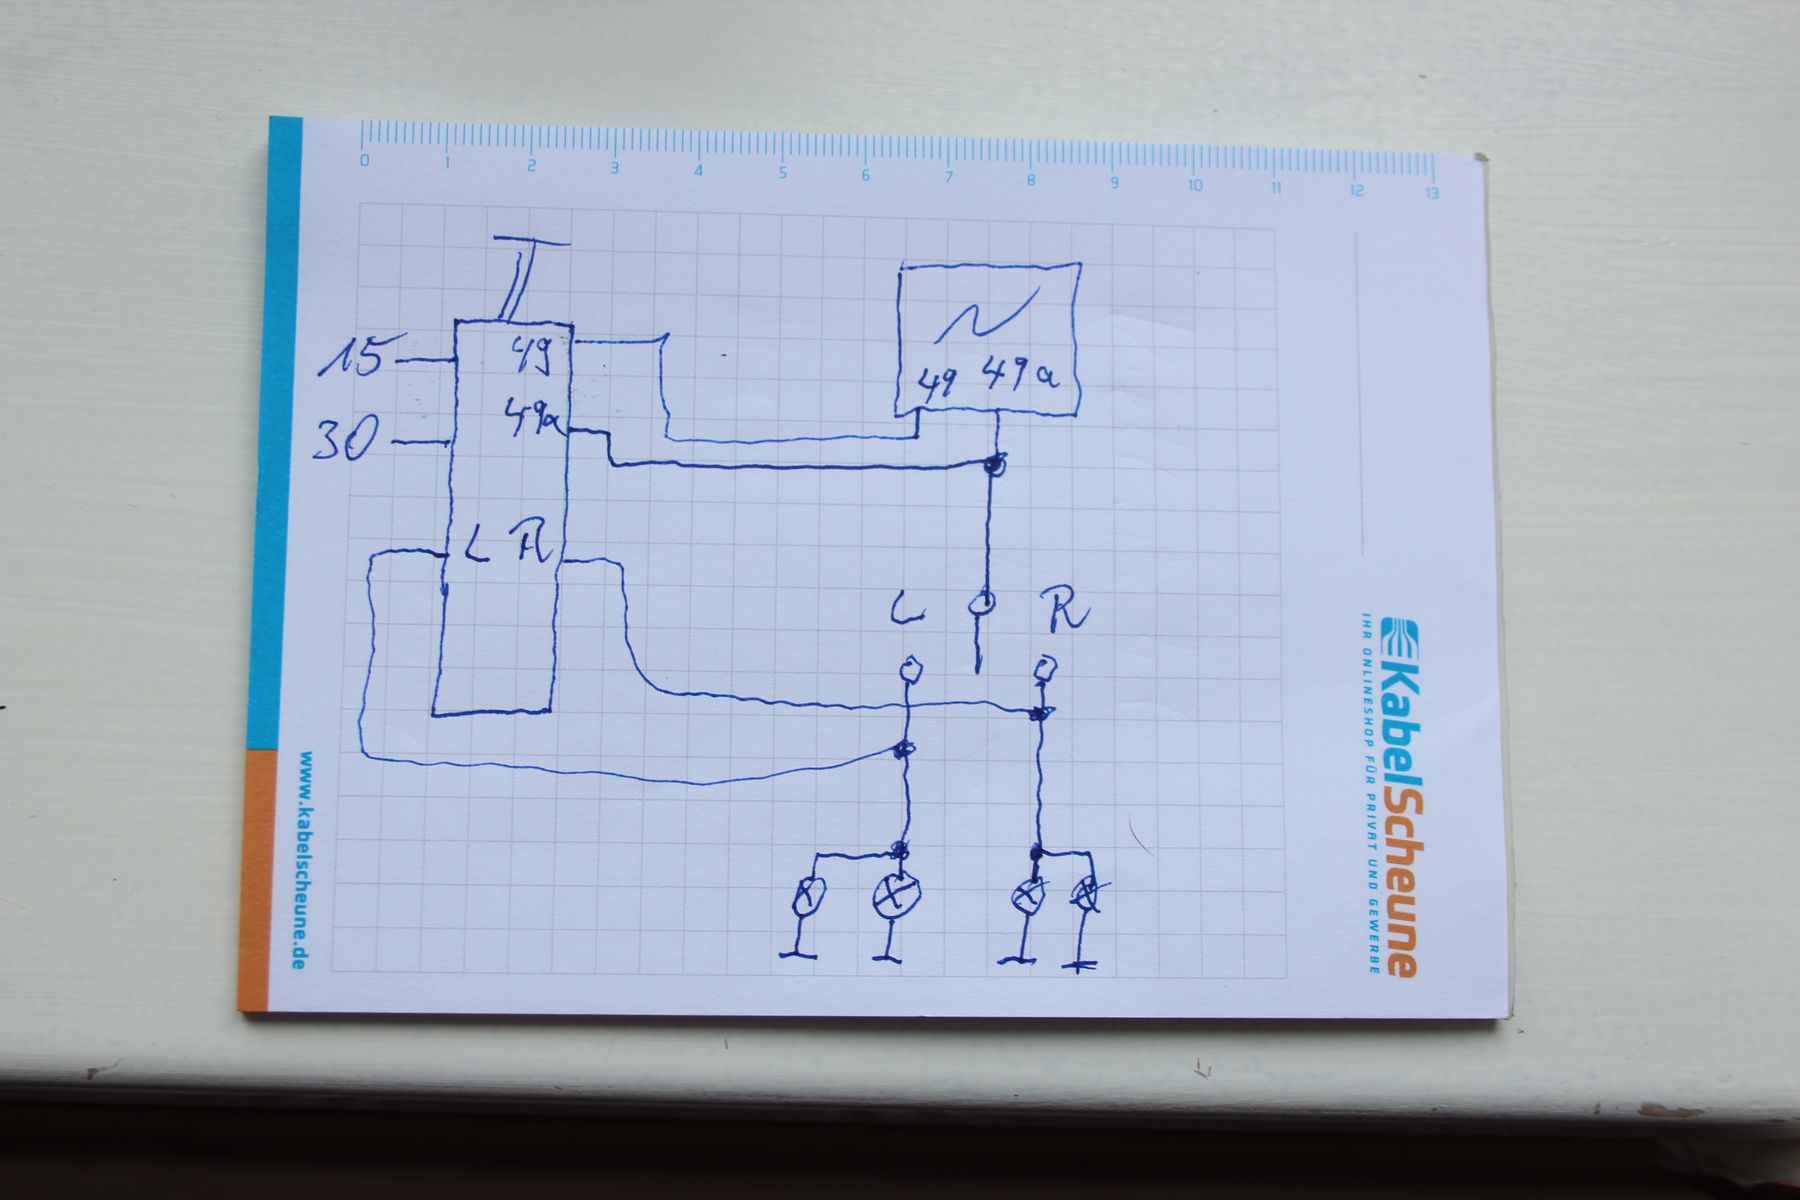 0 1 2 3 4 5 6 7 8 9 10 11 12 13
15
49
49 49a
49a
30
L R
L R
KabelScheune
IHR ONLINESHOP FÜR PRIVAT UND GEWERBE
www.kabelscheune.de